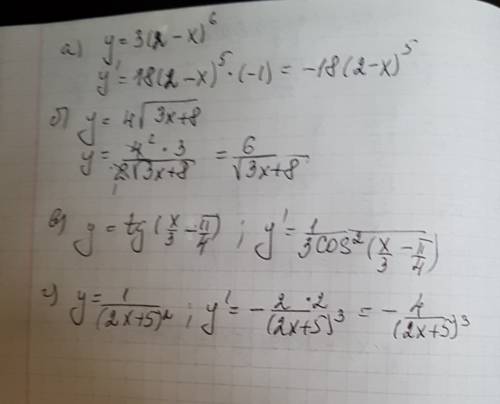 а) y = 3(2-x)^6
y' = 18(2-x)^5 · (-1) = -18(2-x)^5
б) y = 4√(3x+8)
y = (4^2 · 3)/(2√(3x+8)) = 6/√(3x+8)
в) y = tg(x/3 - π/4) ; y' = 1/(3cos^2(x/3 - π/4))
г) y = 1/(2x+5)^2 ; y' = -(2·2)/(2x+5)^3 = -4/(2x+5)^3